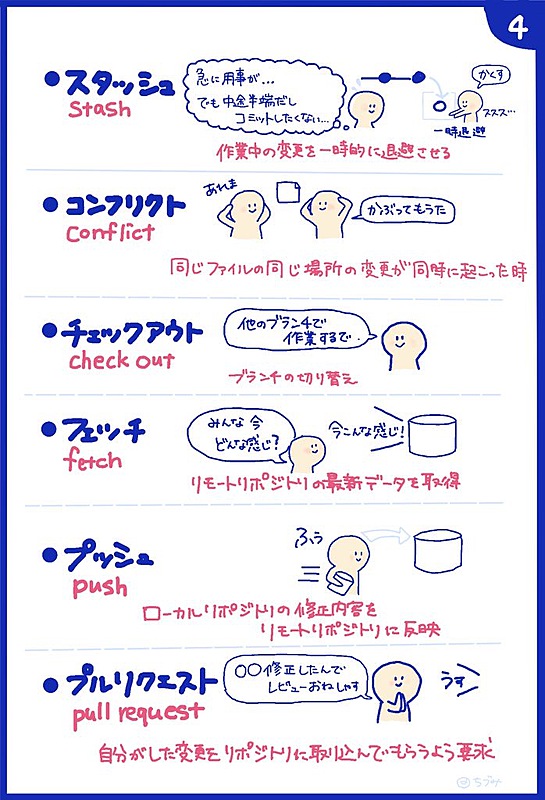 4
●スタッシュ
stash
急に用事が...
でも中途半端だし
コミットしたくない...
かくす
ススス...
一時退避
作業中の変更を一時的に退避させる
●コンフリクト
conflict
あれま
かぶってもうた
同じファイルの同じ場所の変更が同時に起こった時
●チェックアウト
check out
他のブランチで
作業するで
ブランチの切り替え
●フェッチ
fetch
みんな今
どんな感じ?
今こんな感じ!
リモートリポジトリの最新データを取得
●プッシュ
push
ふぅ
ローカルリポジトリの修正内容を
リモートリポジトリに反映
●プルリクエスト
pull request
〇〇修正したんで
レビューおねしゃす
うす
自分がした変更をリポジトリに取り込んでもらうよう要求
ちづみ